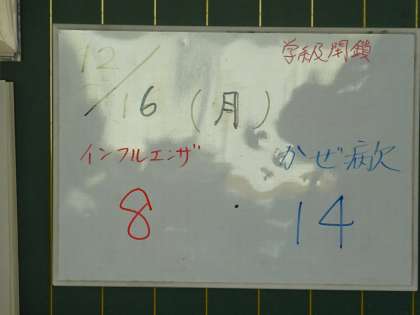 学級閉鎖
12/16(月)
インフルエンザ かぜ病欠
8 14